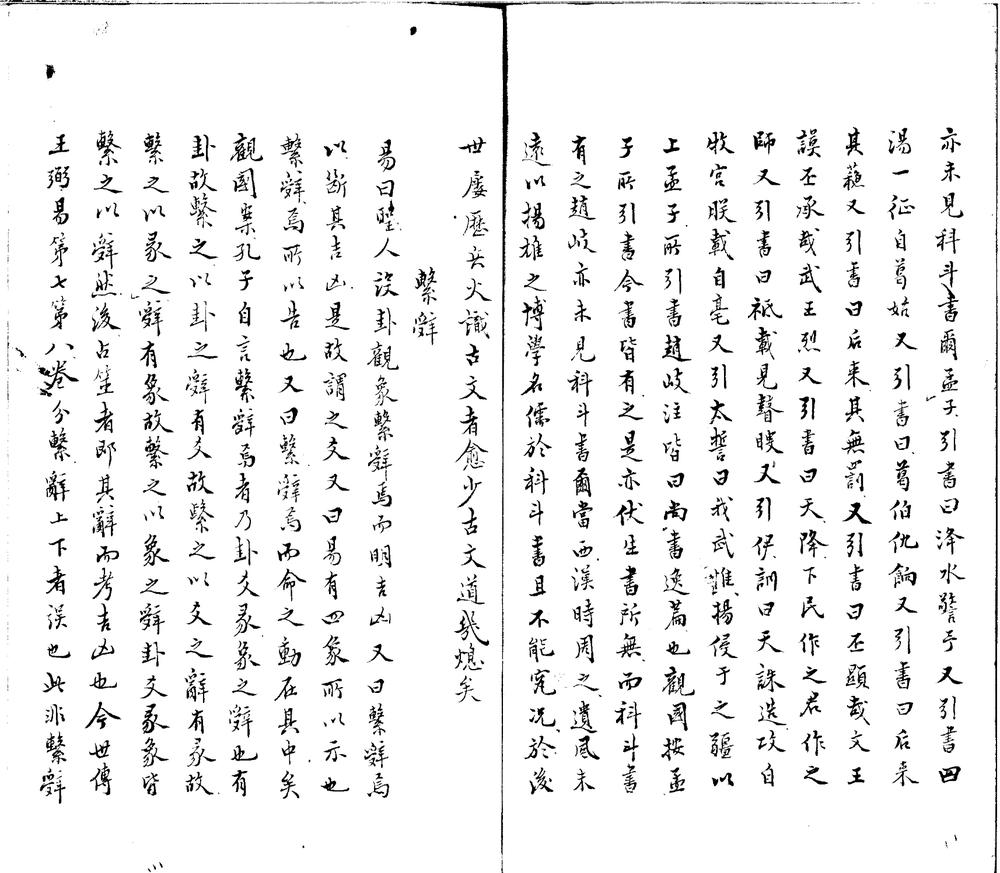 亦未見科斗書爾孟子引書曰洚水警予又引書四
湯一征自葛始又引書曰葛伯仇餉又引書曰后来
其蘓又引書曰后来其無罰又引書曰丕顯哉文王
謨丕承哉武王烈又引書曰天降下民作之君作之
師又引書曰祗載見瞽瞍又引伊訓曰天誅造攻自
牧宮朕載自亳又引太誓曰我武惟揚侵于之疆以
上孟子所引書趙岐注皆曰尚書逸篇也觀國按孟
子所引書今書皆有之是亦伏生書所無而科斗書
有之趙岐亦未見科斗書爾當西漢時周之遺風未
遠以揚雄之博學名儒於科斗書且不能究况於後
世屢歷兵火識古文者愈少古文道幾熄矣
繫辭
易曰聖人設卦觀象繫辭焉而明吉凶又曰繫辭焉
以斷其吉凶是故謂之爻又曰易有四象所以示也
繫辭焉所以告也又曰繫辭焉而命之動在其中矣
觀國案孔子自言繫辭焉者乃卦爻彖象之辭也有
卦故繫之以卦之辭有爻故繫之以爻之辭有彖故
繫之以彖之辭有象故繫之以象之辭卦爻彖象皆
繫之以辭然後占筮者即其辭而考吉凶也今世傳
王弼易第七第八卷分繫辭上下者误也此非繫辭